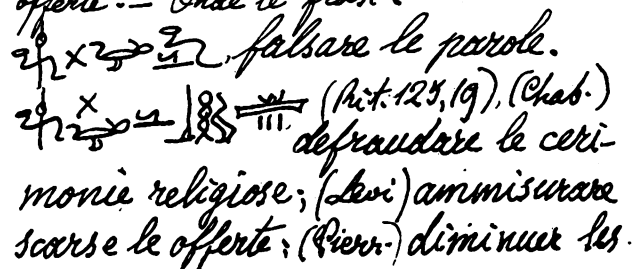 offerte. — Onde le frasi:
falsare le parole.
(Rit. 125, 19), (Chab.)
defraudare le ceri-
monie religiose; (Levi) ammisurare
scarse le offerte; (Pierr.) diminuer les